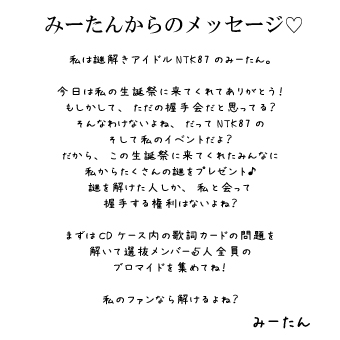 みーたんからのメッセージ♡
私は謎解きアイドルNTK87のみーたん。
今日は私の生誕祭に来てくれてありがとう！
もしかして、ただの握手会だと思ってる？
そんなわけないよね、だってNTK87の
そして私のイベントだよ？
だから、この生誕祭に来てくれたみんなに
私からたくさんの謎をプレゼント♪
謎を解けた人しか、私と会って
握手する権利はないよね？
まずはCDケース内の歌詞カードの問題を
解いて選抜メンバー5人全員の
ブロマイドを集めてね！
私のファンなら解けるよね？
みーたん